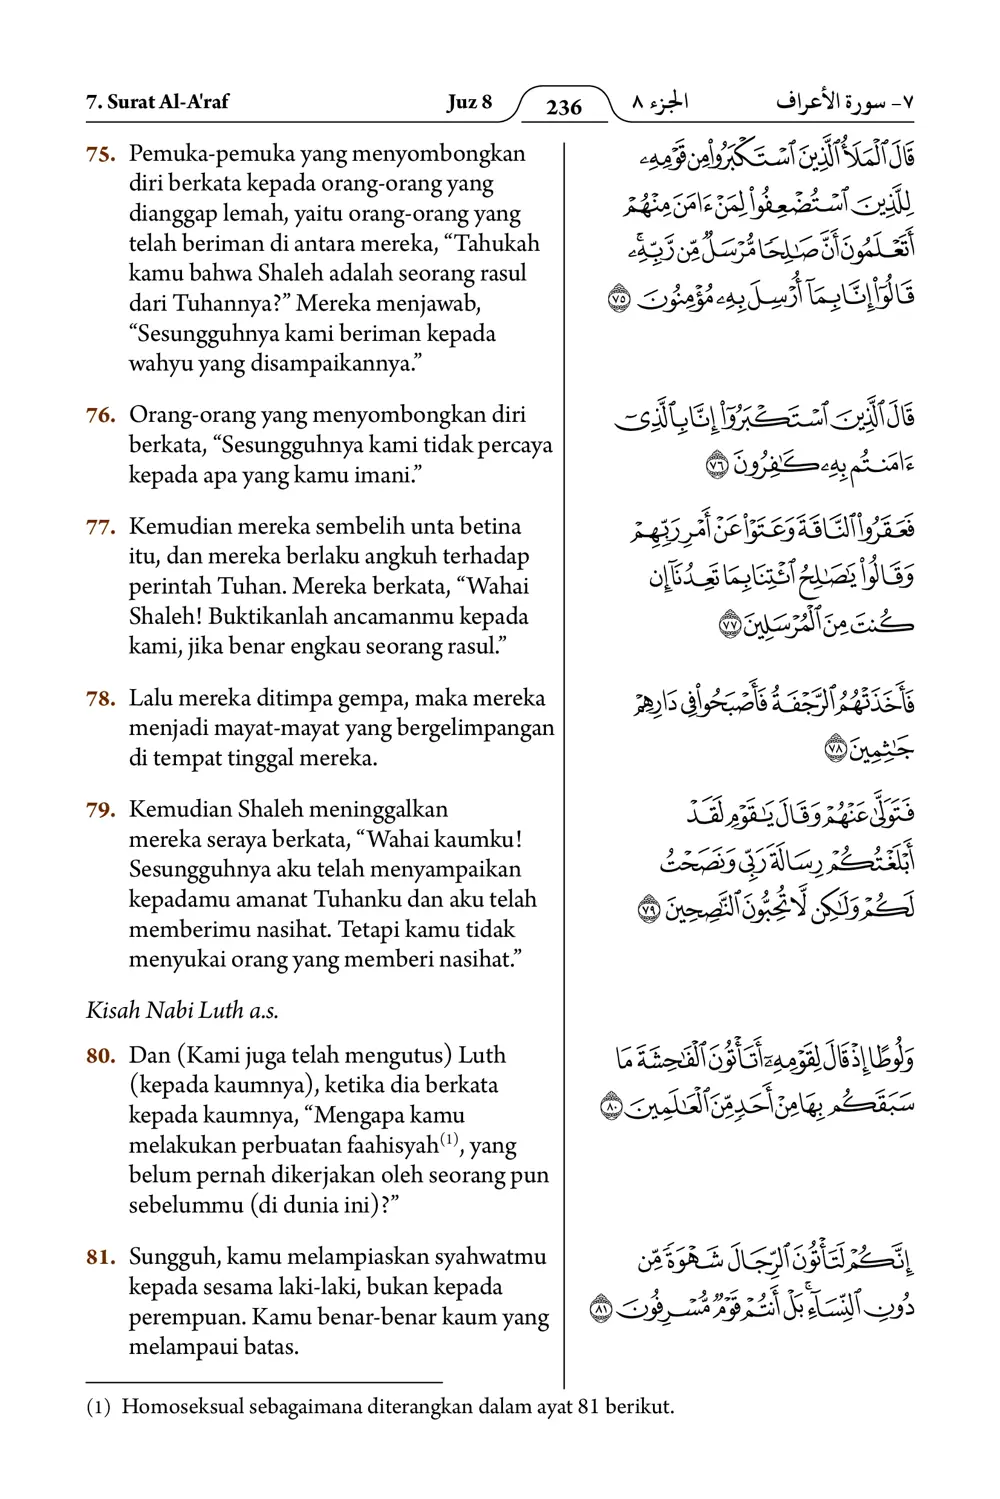 7. Surat Al-A'raf
Juz 8
236
الجزء ٨
٧- سورة الأعراف
75. Pemuka-pemuka yang menyombongkan
diri berkata kepada orang-orang yang
dianggap lemah, yaitu orang-orang yang
telah beriman di antara mereka, “Tahukah
kamu bahwa Shaleh adalah seorang rasul
dari Tuhannya?” Mereka menjawab,
“Sesungguhnya kami beriman kepada
wahyu yang disampaikannya.”
76. Orang-orang yang menyombongkan diri
berkata, “Sesungguhnya kami tidak percaya
kepada apa yang kamu imani.”
77. Kemudian mereka sembelih unta betina
itu, dan mereka berlaku angkuh terhadap
perintah Tuhan. Mereka berkata, “Wahai
Shaleh! Buktikanlah ancamanmu kepada
kami, jika benar engkau seorang rasul.”
78. Lalu mereka ditimpa gempa, maka mereka
menjadi mayat-mayat yang bergelimpangan
di tempat tinggal mereka.
79. Kemudian Shaleh meninggalkan
mereka seraya berkata, “Wahai kaumku!
Sesungguhnya aku telah menyampaikan
kepadamu amanat Tuhanku dan aku telah
memberimu nasihat. Tetapi kamu tidak
menyukai orang yang memberi nasihat.”
Kisah Nabi Luth a.s.
80. Dan (Kami juga telah mengutus) Luth
(kepada kaumnya), ketika dia berkata
kepada kaumnya, “Mengapa kamu
melakukan perbuatan faahisyah(1), yang
belum pernah dikerjakan oleh seorang pun
sebelummu (di dunia ini)?”
81. Sungguh, kamu melampiaskan syahwatmu
kepada sesama laki-laki, bukan kepada
perempuan. Kamu benar-benar kaum yang
melampaui batas.
قَالَ ٱلْمَلَأُ ٱلَّذِينَ ٱسْتَكْبَرُوا۟ مِن قَوْمِهِۦ
لِلَّذِينَ ٱسْتُضْعِفُوا۟ لِمَنْ ءَامَنَ مِنْهُمْ
أَتَعْلَمُونَ أَنَّ صَٰلِحًا مُّرْسَلٌ مِّن رَّبِّهِۦ ۚ
قَالُوٓا۟ إِنَّا بِمَآ أُرْسِلَ بِهِۦ مُؤْمِنُونَ ٧٥
قَالَ ٱلَّذِينَ ٱسْتَكْبَرُوٓا۟ إِنَّا بِٱلَّذِىٓ
ءَامَنتُم بِهِۦ كَٰفِرُونَ ٧٦
فَعَقَرُوا۟ ٱلنَّاقَةَ وَعَتَوْا۟ عَنْ أَمْرِ رَبِّهِمْ
وَقَالُوا۟ يَٰصَٰلِحُ ٱئْتِنَا بِمَا تَعِدُنَآ إِن
كُنتَ مِنَ ٱلْمُرْسَلِينَ ٧٧
فَأَخَذَتْهُمُ ٱلرَّجْفَةُ فَأَصْبَحُوا۟ فِى دَارِهِمْ
جَٰثِمِينَ ٧٨
فَتَوَلَّىٰ عَنْهُمْ وَقَالَ يَٰقَوْمِ لَقَدْ
أَبْلَغْتُكُمْ رِسَالَةَ رَبِّى وَنَصَحْتُ
لَكُمْ وَلَٰكِن لَّا تُحِبُّونَ ٱلنَّٰصِحِينَ ٧٩
وَلُوطًا إِذْ قَالَ لِقَوْمِهِۦٓ أَتَأْتُونَ ٱلْفَٰحِشَةَ مَا
سَبَقَكُم بِهَا مِنْ أَحَدٍ مِّنَ ٱلْعَٰلَمِينَ ٨٠
إِنَّكُمْ لَتَأْتُونَ ٱلرِّجَالَ شَهْوَةً مِّن
دُونِ ٱلنِّسَآءِ ۚ بَلْ أَنتُمْ قَوْمٌ مُّسْرِفُونَ ٨١
(1) Homoseksual sebagaimana diterangkan dalam ayat 81 berikut.